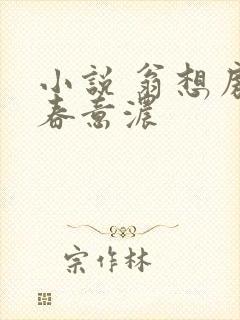 小説 翁想房
春意濃
宗作林